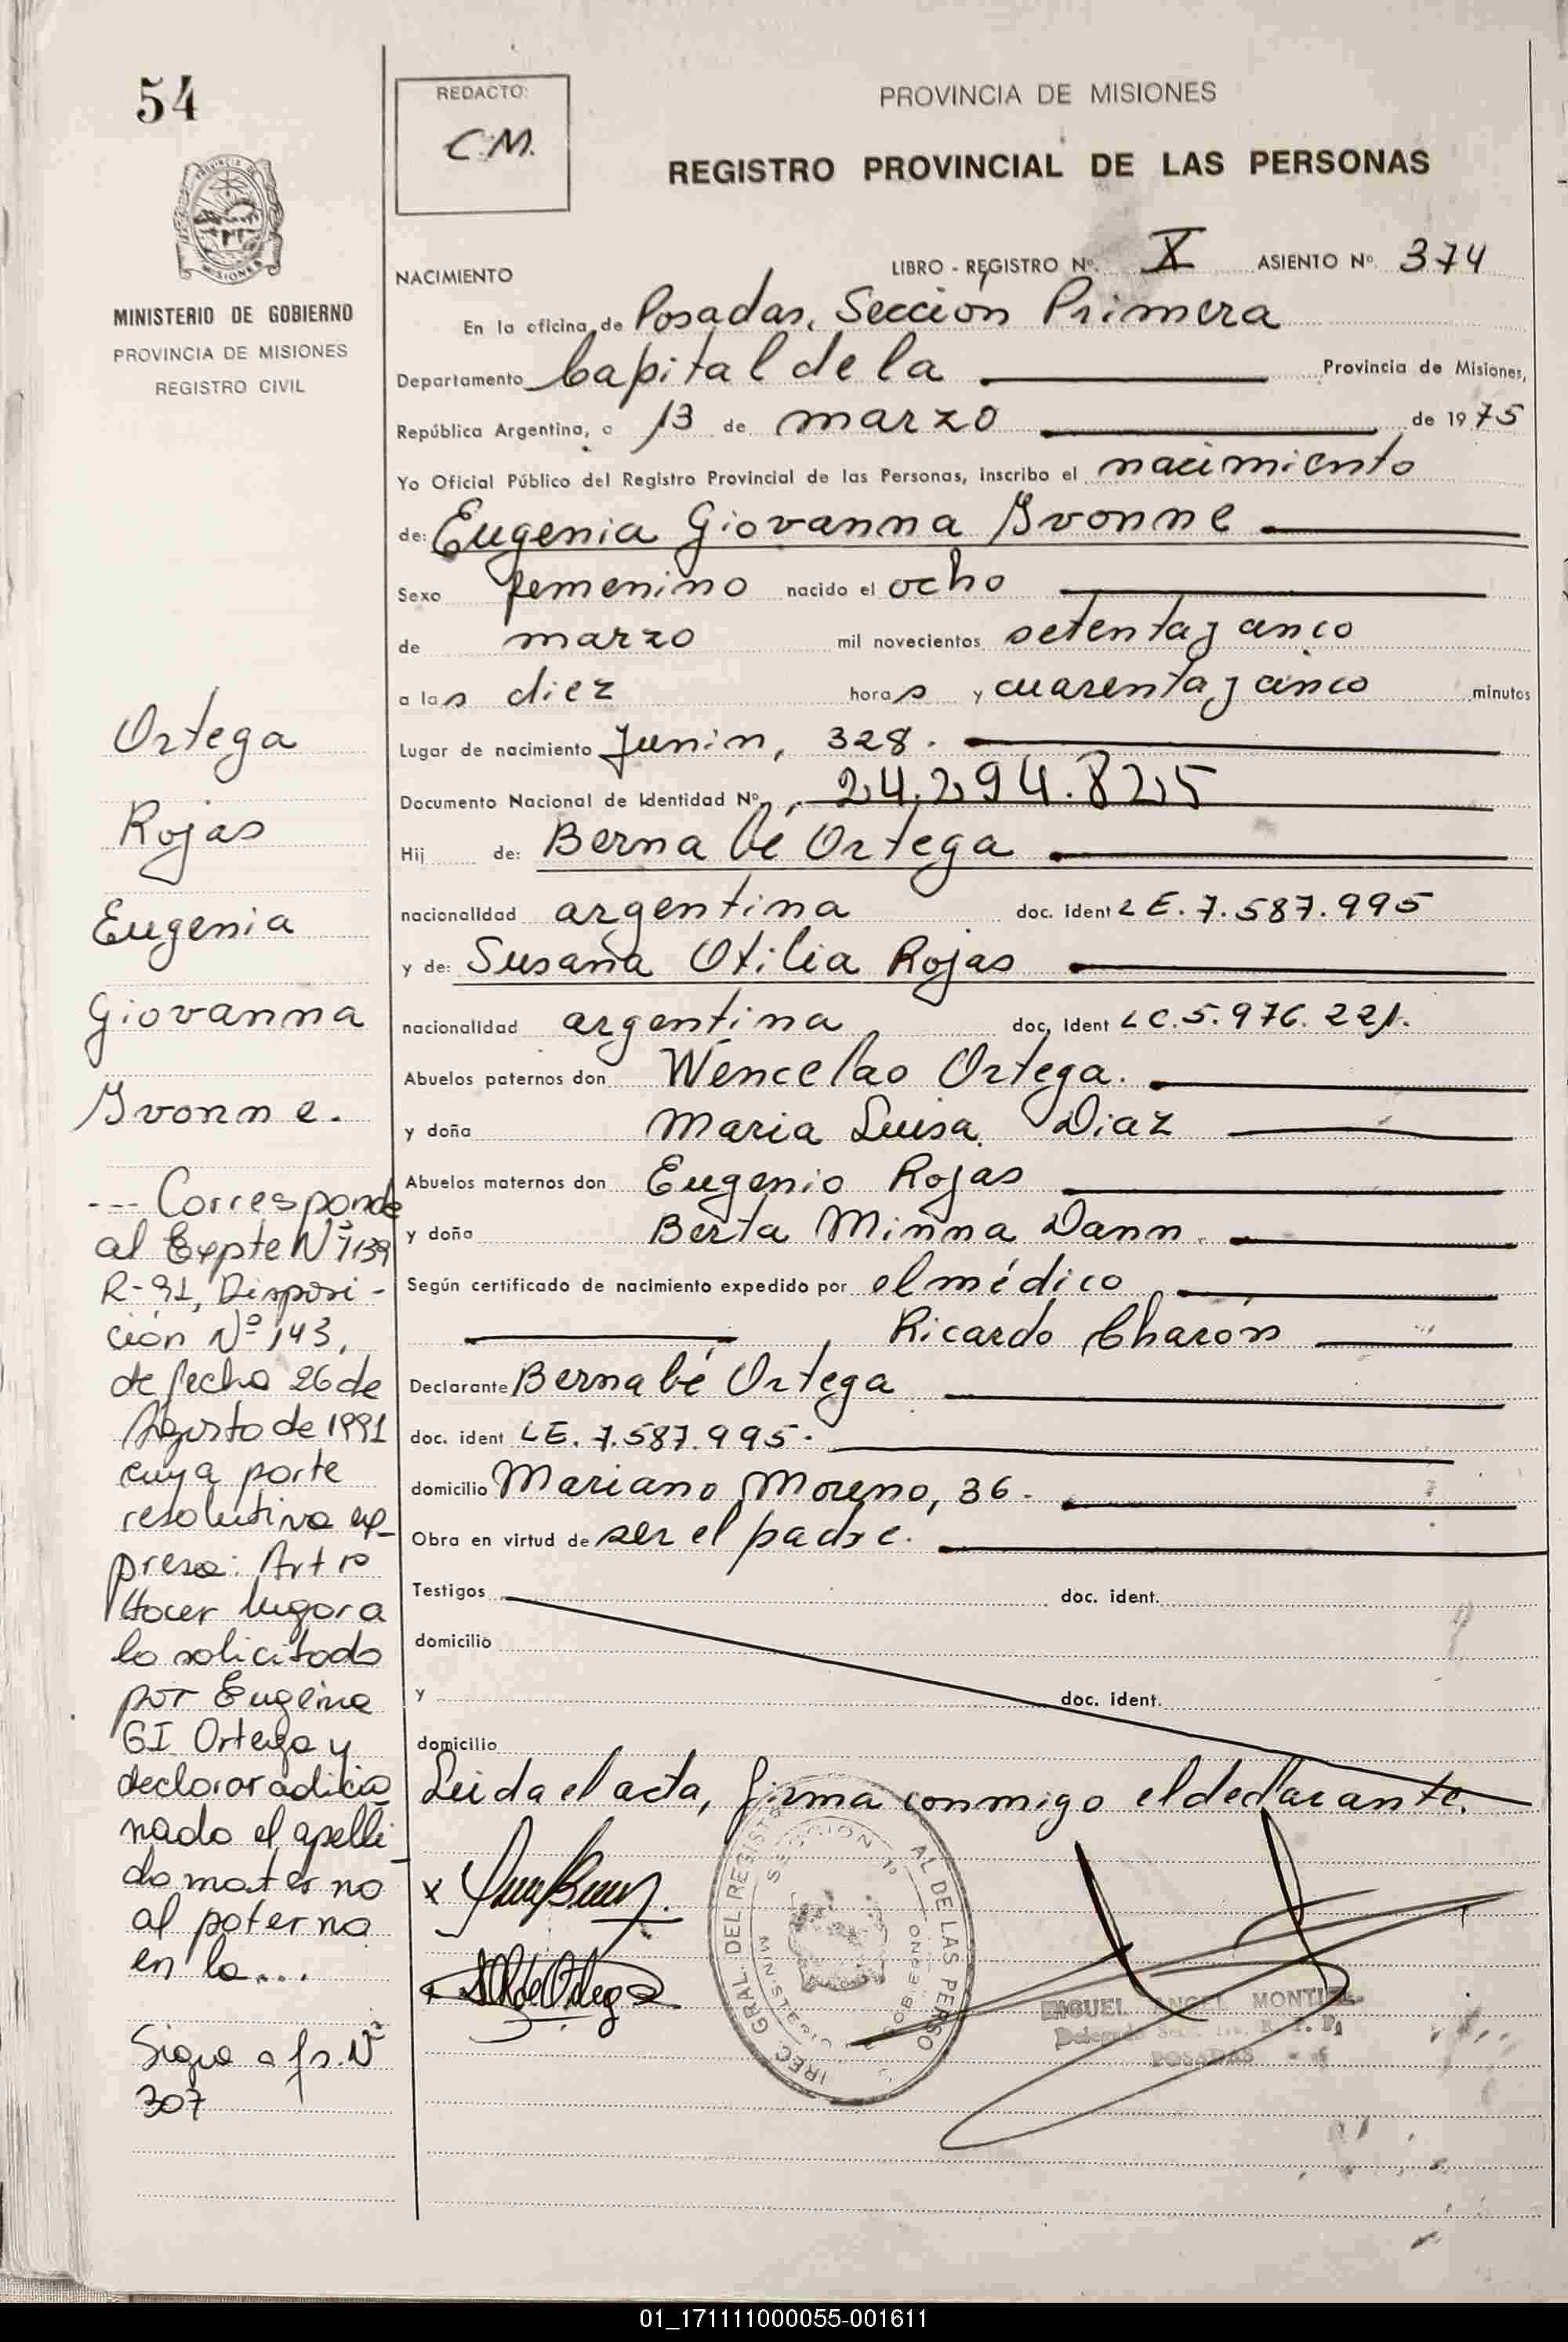 54
REDACTO:
C.M.
PROVINCIA DE MISIONES
REGISTRO PROVINCIAL DE LAS PERSONAS
MINISTERIO DE GOBIERNO
PROVINCIA DE MISIONES
REGISTRO CIVIL
NACIMIENTO
LIBRO - REGISTRO Nº. X ASIENTO Nº. 374
En la oficina de Posadas, Sección Primera
Departamento Capital de la Provincia de Misiones,
República Argentina, a 13 de marzo de 1975
Yo Oficial Público del Registro Provincial de las Personas, inscribo el nacimiento
de: Eugenia Giovanna Ivonne
Sexo femenino nacido el ocho
de marzo mil novecientos setenta y cinco
a las diez horas y cuarenta y cinco minutos
Lugar de nacimiento Junin, 328.
Documento Nacional de Identidad Nº 24.294.825
Hij de: Bernabé Ortega
nacionalidad argentina doc. ident LE. 7.587.995
y de: Susana Otilia Rojas
nacionalidad argentina doc. ident LC. 5.976.221.
Abuelos paternos don Wencelao Ortega.
y doña Maria Luisa Diaz
Abuelos maternos don Eugenio Rojas
y doña Berta Minna Dann
Según certificado de nacimiento expedido por el médico
Ricardo Charón
Declarante Bernabé Ortega
doc. ident LE. 7.587.995.
domicilio Mariano Moreno, 36.
Obra en virtud de ser el padre.
Testigos doc. ident.
domicilio
y doc. ident.
domicilio
Leida el acta, firma conmigo el declarante.
MIGUEL ANGEL MONTIEL
POSADAS
Ortega
Rojas
Eugenia
Giovanna
Ivonne.
--- Corresponde
al Expte Nº 1139
R-91, Disposi-
ción Nº 143,
de fecha 26 de
Agosto de 1991
cuya parte
resolutiva ex-
presa: Art 1º
Hacer lugar a
lo solicitado
por Eugenia
GI Ortega y
declarar adicio-
nado el apelli-
do materno
al paterno
en la...
Sigue a fs. Nº
307
01_171111000055-001611